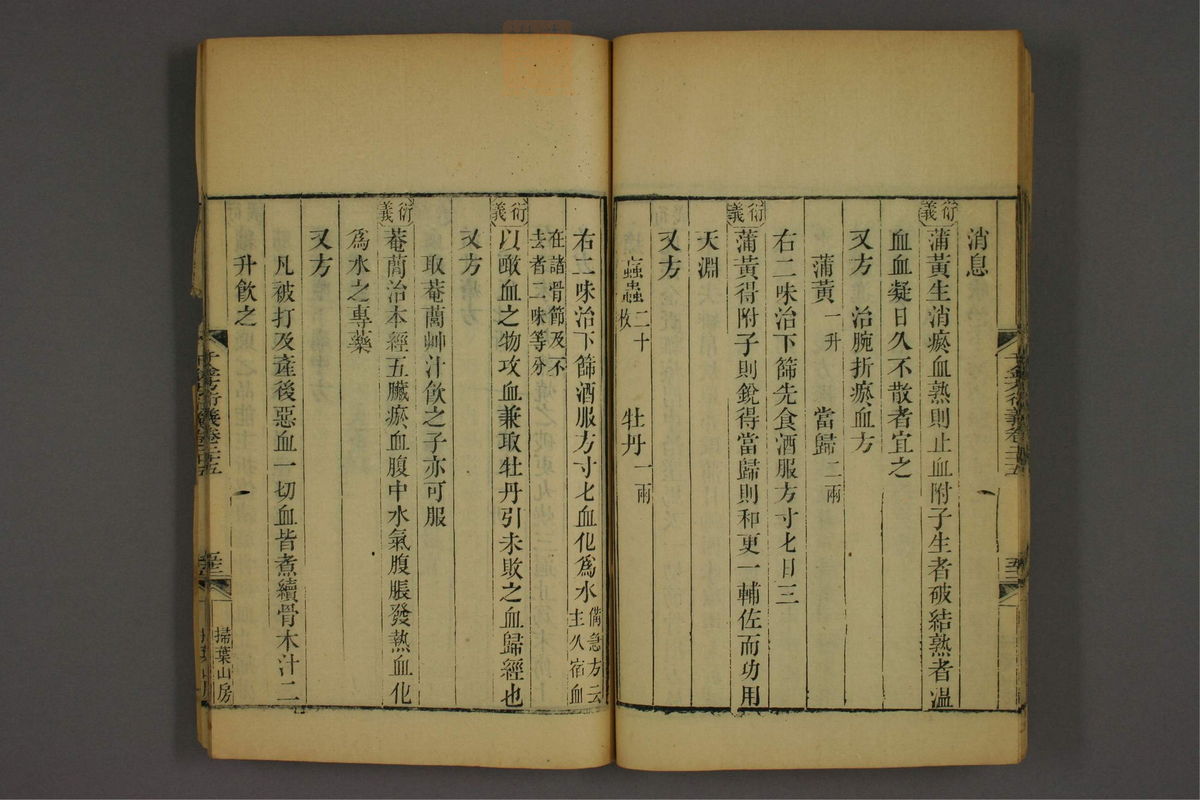 消息
衍義 蒲黃生消瘀血熟則止血附子生者破結熟者溫
血血凝日久不散者宜之
又方 治腕折瘀血方
蒲黃一升 當歸二兩
右二味治下篩先食酒服方寸匕日三
衍義 蒲黃得附子則銳得當歸則和更一輔佐而功用
天淵
又方
䗈蟲二十枚 牡丹一兩
右二味治下篩酒服方寸匕血化爲水備急方云主久宿血
在諸骨節及不去者二味等分
衍義 以噉血之物攻血兼取牡丹引未敗之血歸經也
又方
取菴䕡艸汁飲之子亦可服
衍義 菴䕡治本經五臟瘀血腹中水氣腹脹發熱血化
爲水之專藥
又方
凡被打及產後惡血一切血皆煮續骨木汁二
升飲之
千金方衍義卷二十五
掃葉山房